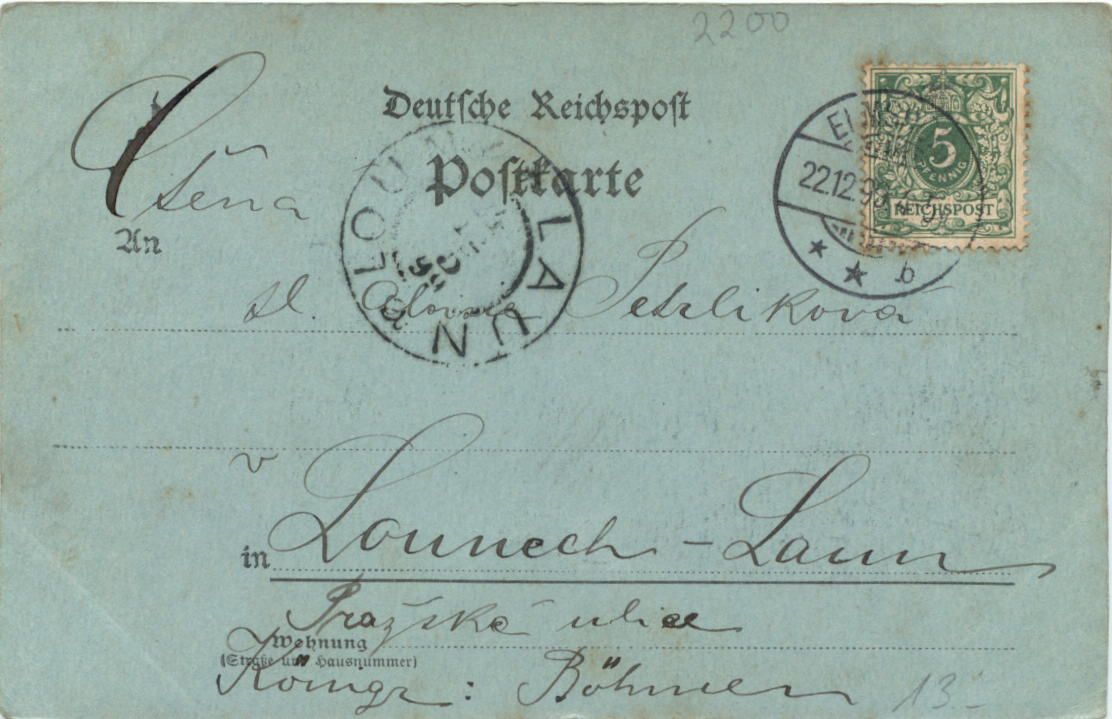 2200
Deutsche Reichspost
Postkarte
Ctěná
An
sl. Petrlikova
5
PFENNIG
REICHSPOST
22.12.9
b
LAUN
LOUNY
v
in Lounech - Laun
Pražská ulice
Wohnung
(Straße und Hausnummer)
Königr: Böhmen
13-